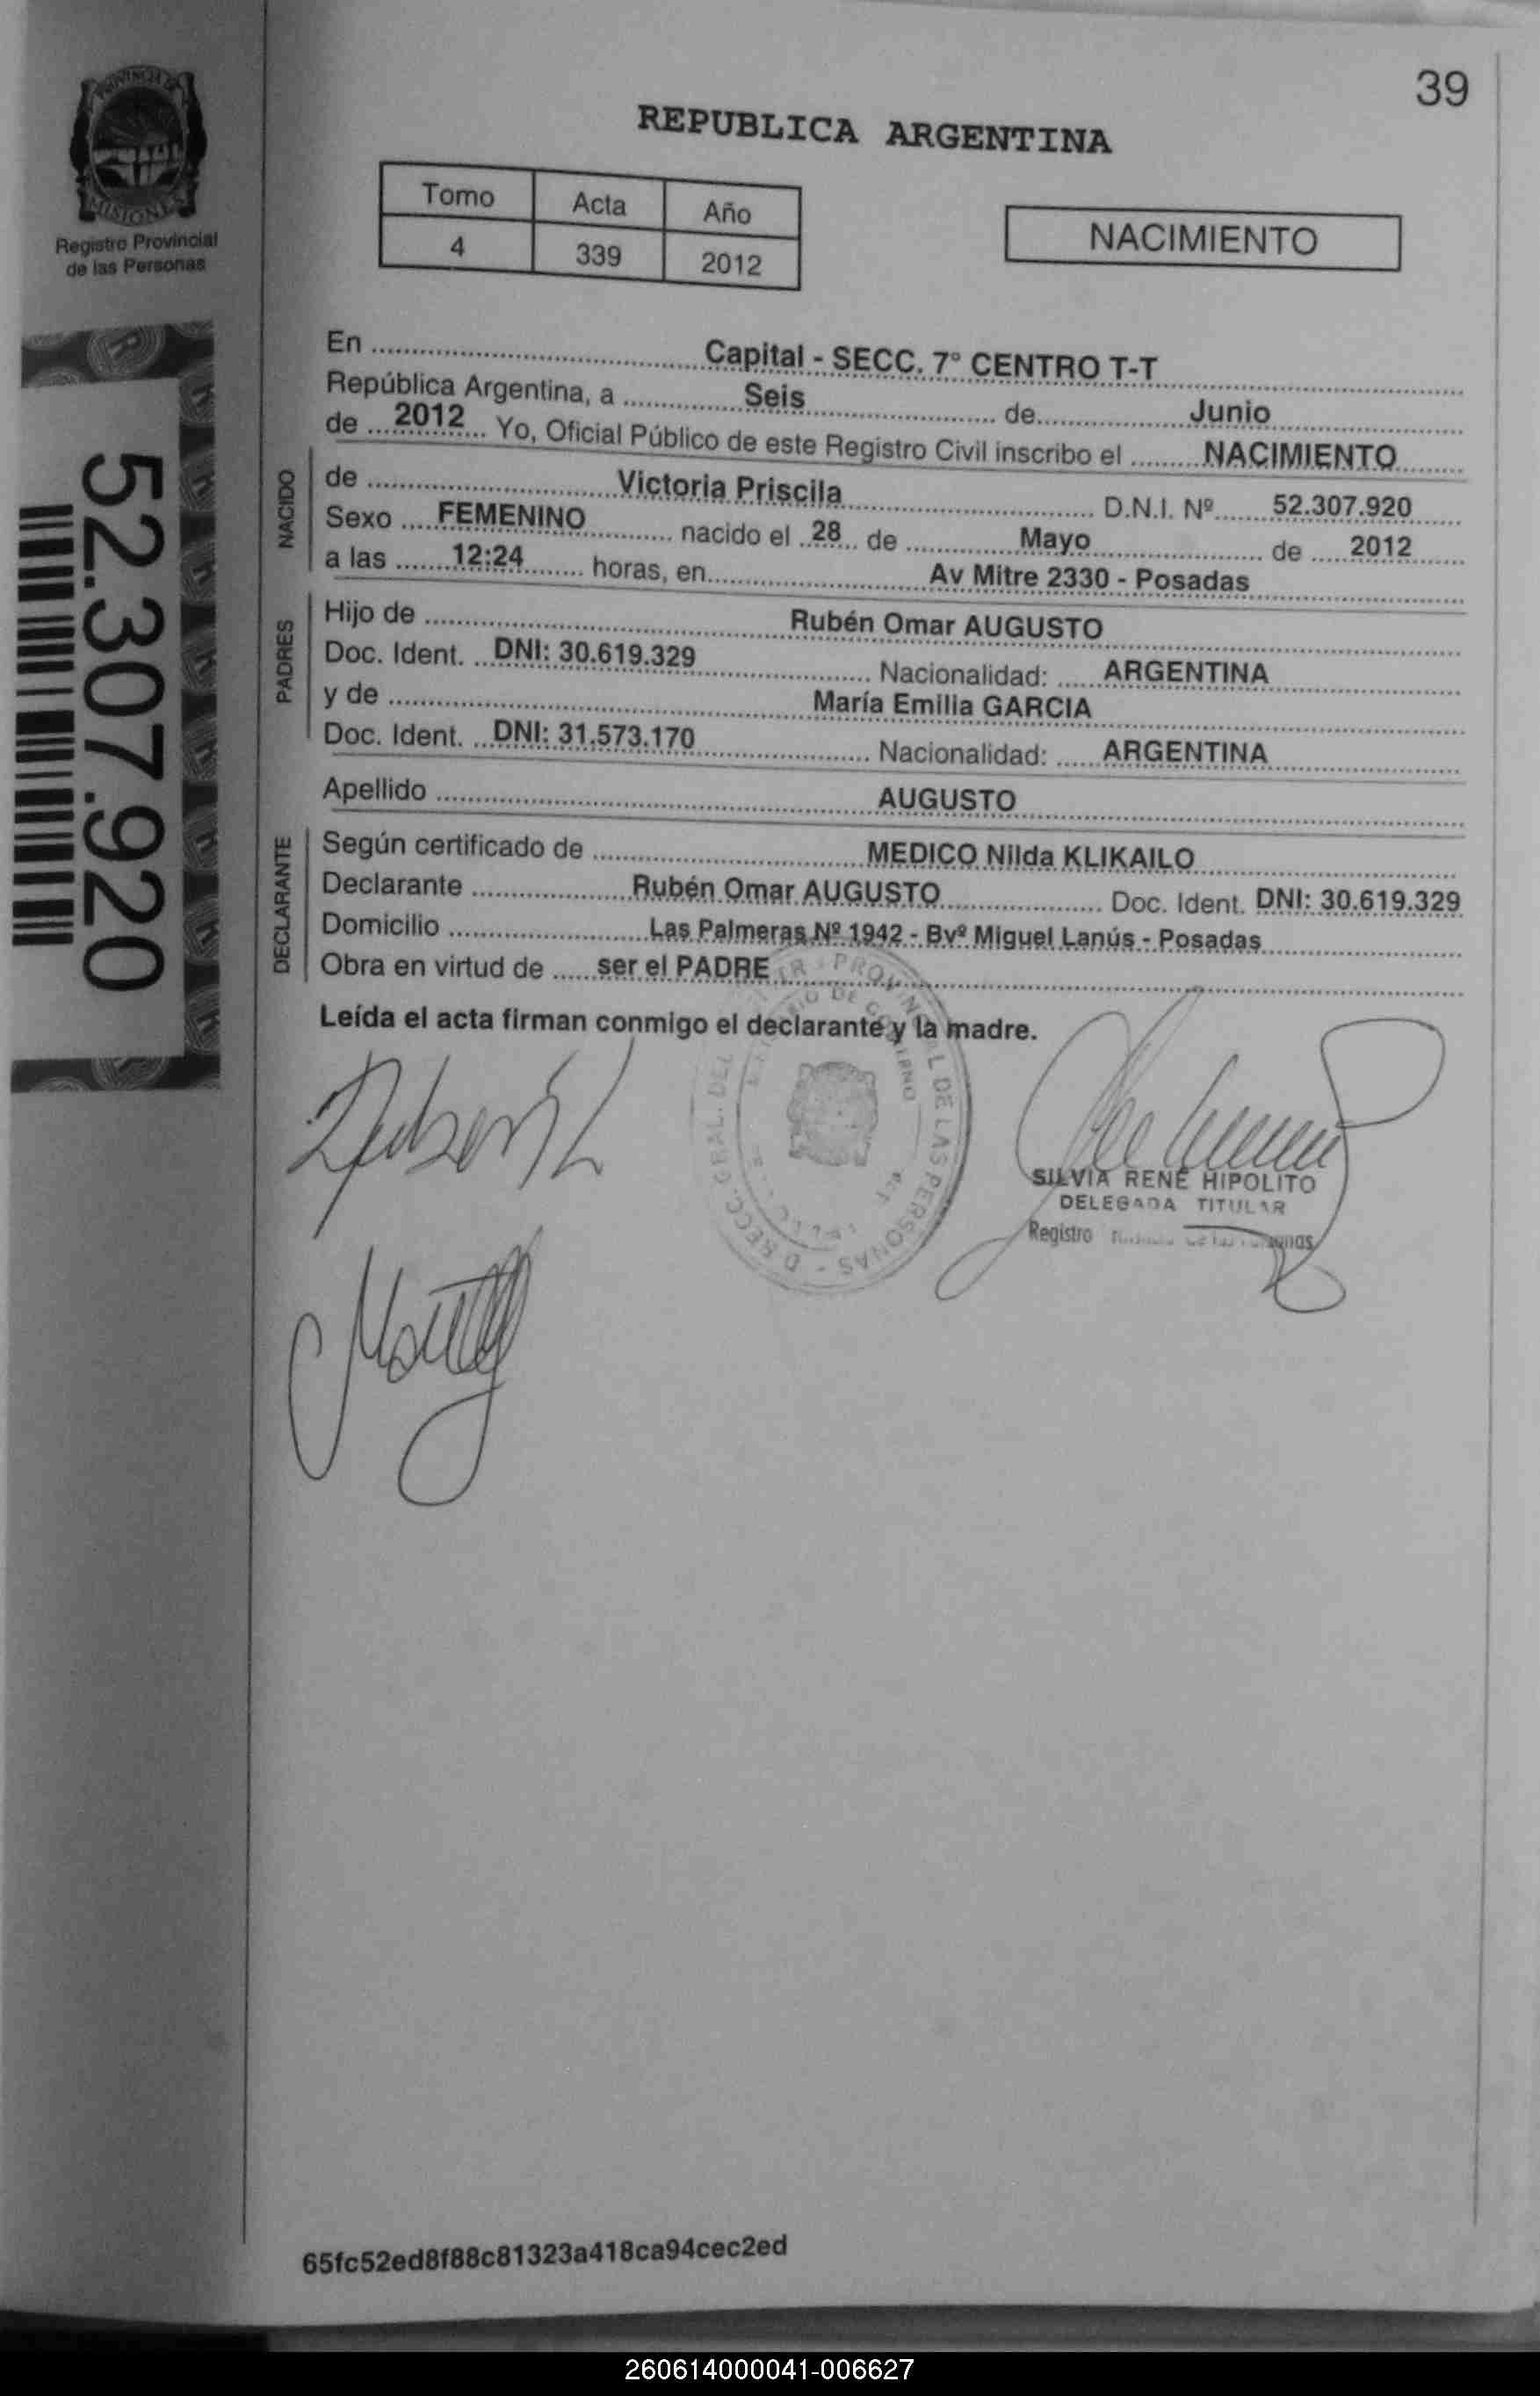 39
PROVINCIA DE
MISIONES
Registro Provincial
de las Personas
REPUBLICA ARGENTINA
Tomo Acta Año
4 339 2012
NACIMIENTO
52.307.920
En Capital - SECC. 7° CENTRO T-T
República Argentina, a Seis de Junio
de 2012 Yo, Oficial Público de este Registro Civil inscribo el NACIMIENTO
NACIDO
de Victoria Priscila D.N.I. Nº 52.307.920
Sexo FEMENINO nacido el 28 de Mayo de 2012
a las 12:24 horas, en Av Mitre 2330 - Posadas
PADRES
Hijo de Rubén Omar AUGUSTO
Doc. Ident. DNI: 30.619.329 Nacionalidad: ARGENTINA
y de María Emilia GARCIA
Doc. Ident. DNI: 31.573.170 Nacionalidad: ARGENTINA
Apellido AUGUSTO
DECLARANTE
Según certificado de MEDICO Nilda KLIKAILO
Declarante Rubén Omar AUGUSTO Doc. Ident. DNI: 30.619.329
Domicilio Las Palmeras Nº 1942 - Bvº Miguel Lanús - Posadas
Obra en virtud de ser el PADRE
Leída el acta firman conmigo el declarante y la madre.
PROVINCIAL DE LAS PERSONAS
SILVIA RENÉ HIPOLITO
DELEGADA TITULAR
Registro
65fc52ed8f88c81323a418ca94cec2ed
260614000041-006627